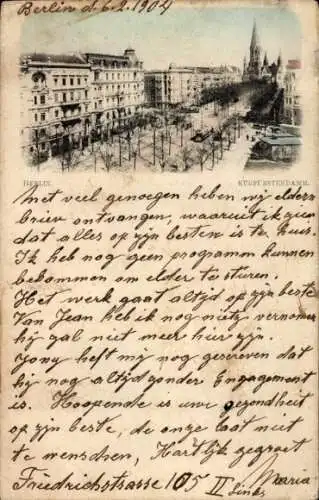 Berlin d. 6.2.1904
BERLIN.
KURFÜRSTENDAMM.
Met veel genoegen heben wij elders
briev ontvangen, waaruit ik zien
dat alles op zijn besten is te huis.
Ik heb nog geen programm kunnen
bekommen om elder te sturen.
Het werk gaat altijd op zijn beste
Van Jean heb ik nog niets vernomen
hij zal niet meer hier zijn.
Jony heft mij nog gesreven dat
hij nog altijd zonder Engagement
is. Hoopende is uwe gezondheit
op zijn beste, de onze laat niet
te wenschen, Hartlijk gegroet
Friedrichstrasse 105 II links Maria